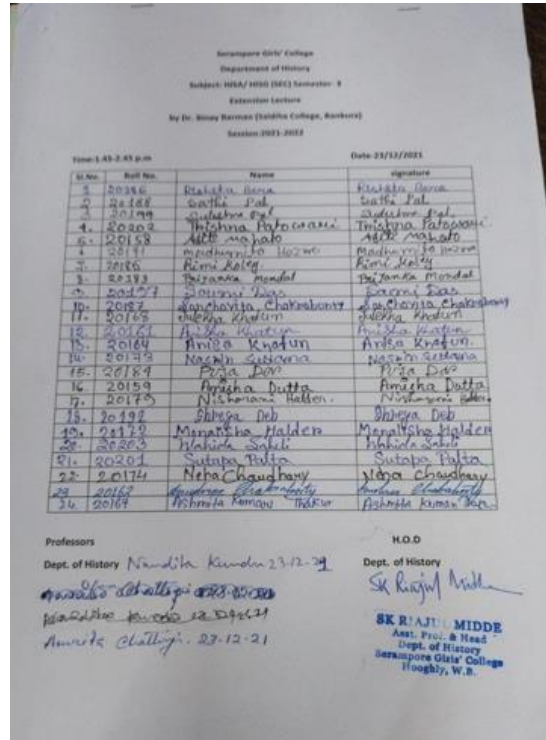 Serampore Girls' College
Department of History
Subject: HISA/ HISG (SEC) Semester- 3
Extension Lecture
by Dr. Binay Barman (Saldiha College, Bankura)
Session:2021-2022
Time:1.45-2.45 p.m Date-23/12/2021
Sl.No. Roll No. Name signature
1 20186
2 20188 Sathi Pal Sathi Pal
3 20199 Pal Pal
4. 20202 Trishna Patowari Trishna Patowari
5. 20158 Mahato Mahato
6 20191 Madhumita Madhumita
7. 20186 Rimi Koley Rimi Koley
8. 20183 Priyanka Mondal Priyanka Mondal
9. Das Das
10. 20187 Sancharita Chakraborty Sancharita Chakraborty
11. 20165 Julekha Khatun Julekha Khatun
12. 20161 Anisha Khatun Anisha Khatun
13. 20164 Anisa Khatun Anisa Khatun.
14. 20173 Nasrin Sultana Nasrin Sultana
15. 20184 Puja Das Puja Das
16 20159 Amisha Dutta Amisha Dutta
17. 20179 Nisharani Halder. Nisharani Halder.
18. 20192 Shreya Deb Shreya Deb
19. 20172 Monalisha Halder Monalisha Halder
20. 20203 Wahida Wahida
21. 20201 Sutapa Palta Sutapa Palta
22. 20174 Neha Chaudhary Neha Chaudhary
23 20162 Chakraborty Chakraborty
24. 20167 Ashmita Kumari Thakur Ashmita Kumari
Professors H.O.D
Dept. of History Nandita Kundu 23-12-21 Dept. of History
SK Riajul Midde
Amrita Chatterji. 23-12-21
SK RIAJUL MIDDE
Asst. Prof. & Head
Dept. of History
Serampore Girls' College
Hooghly, W.B.